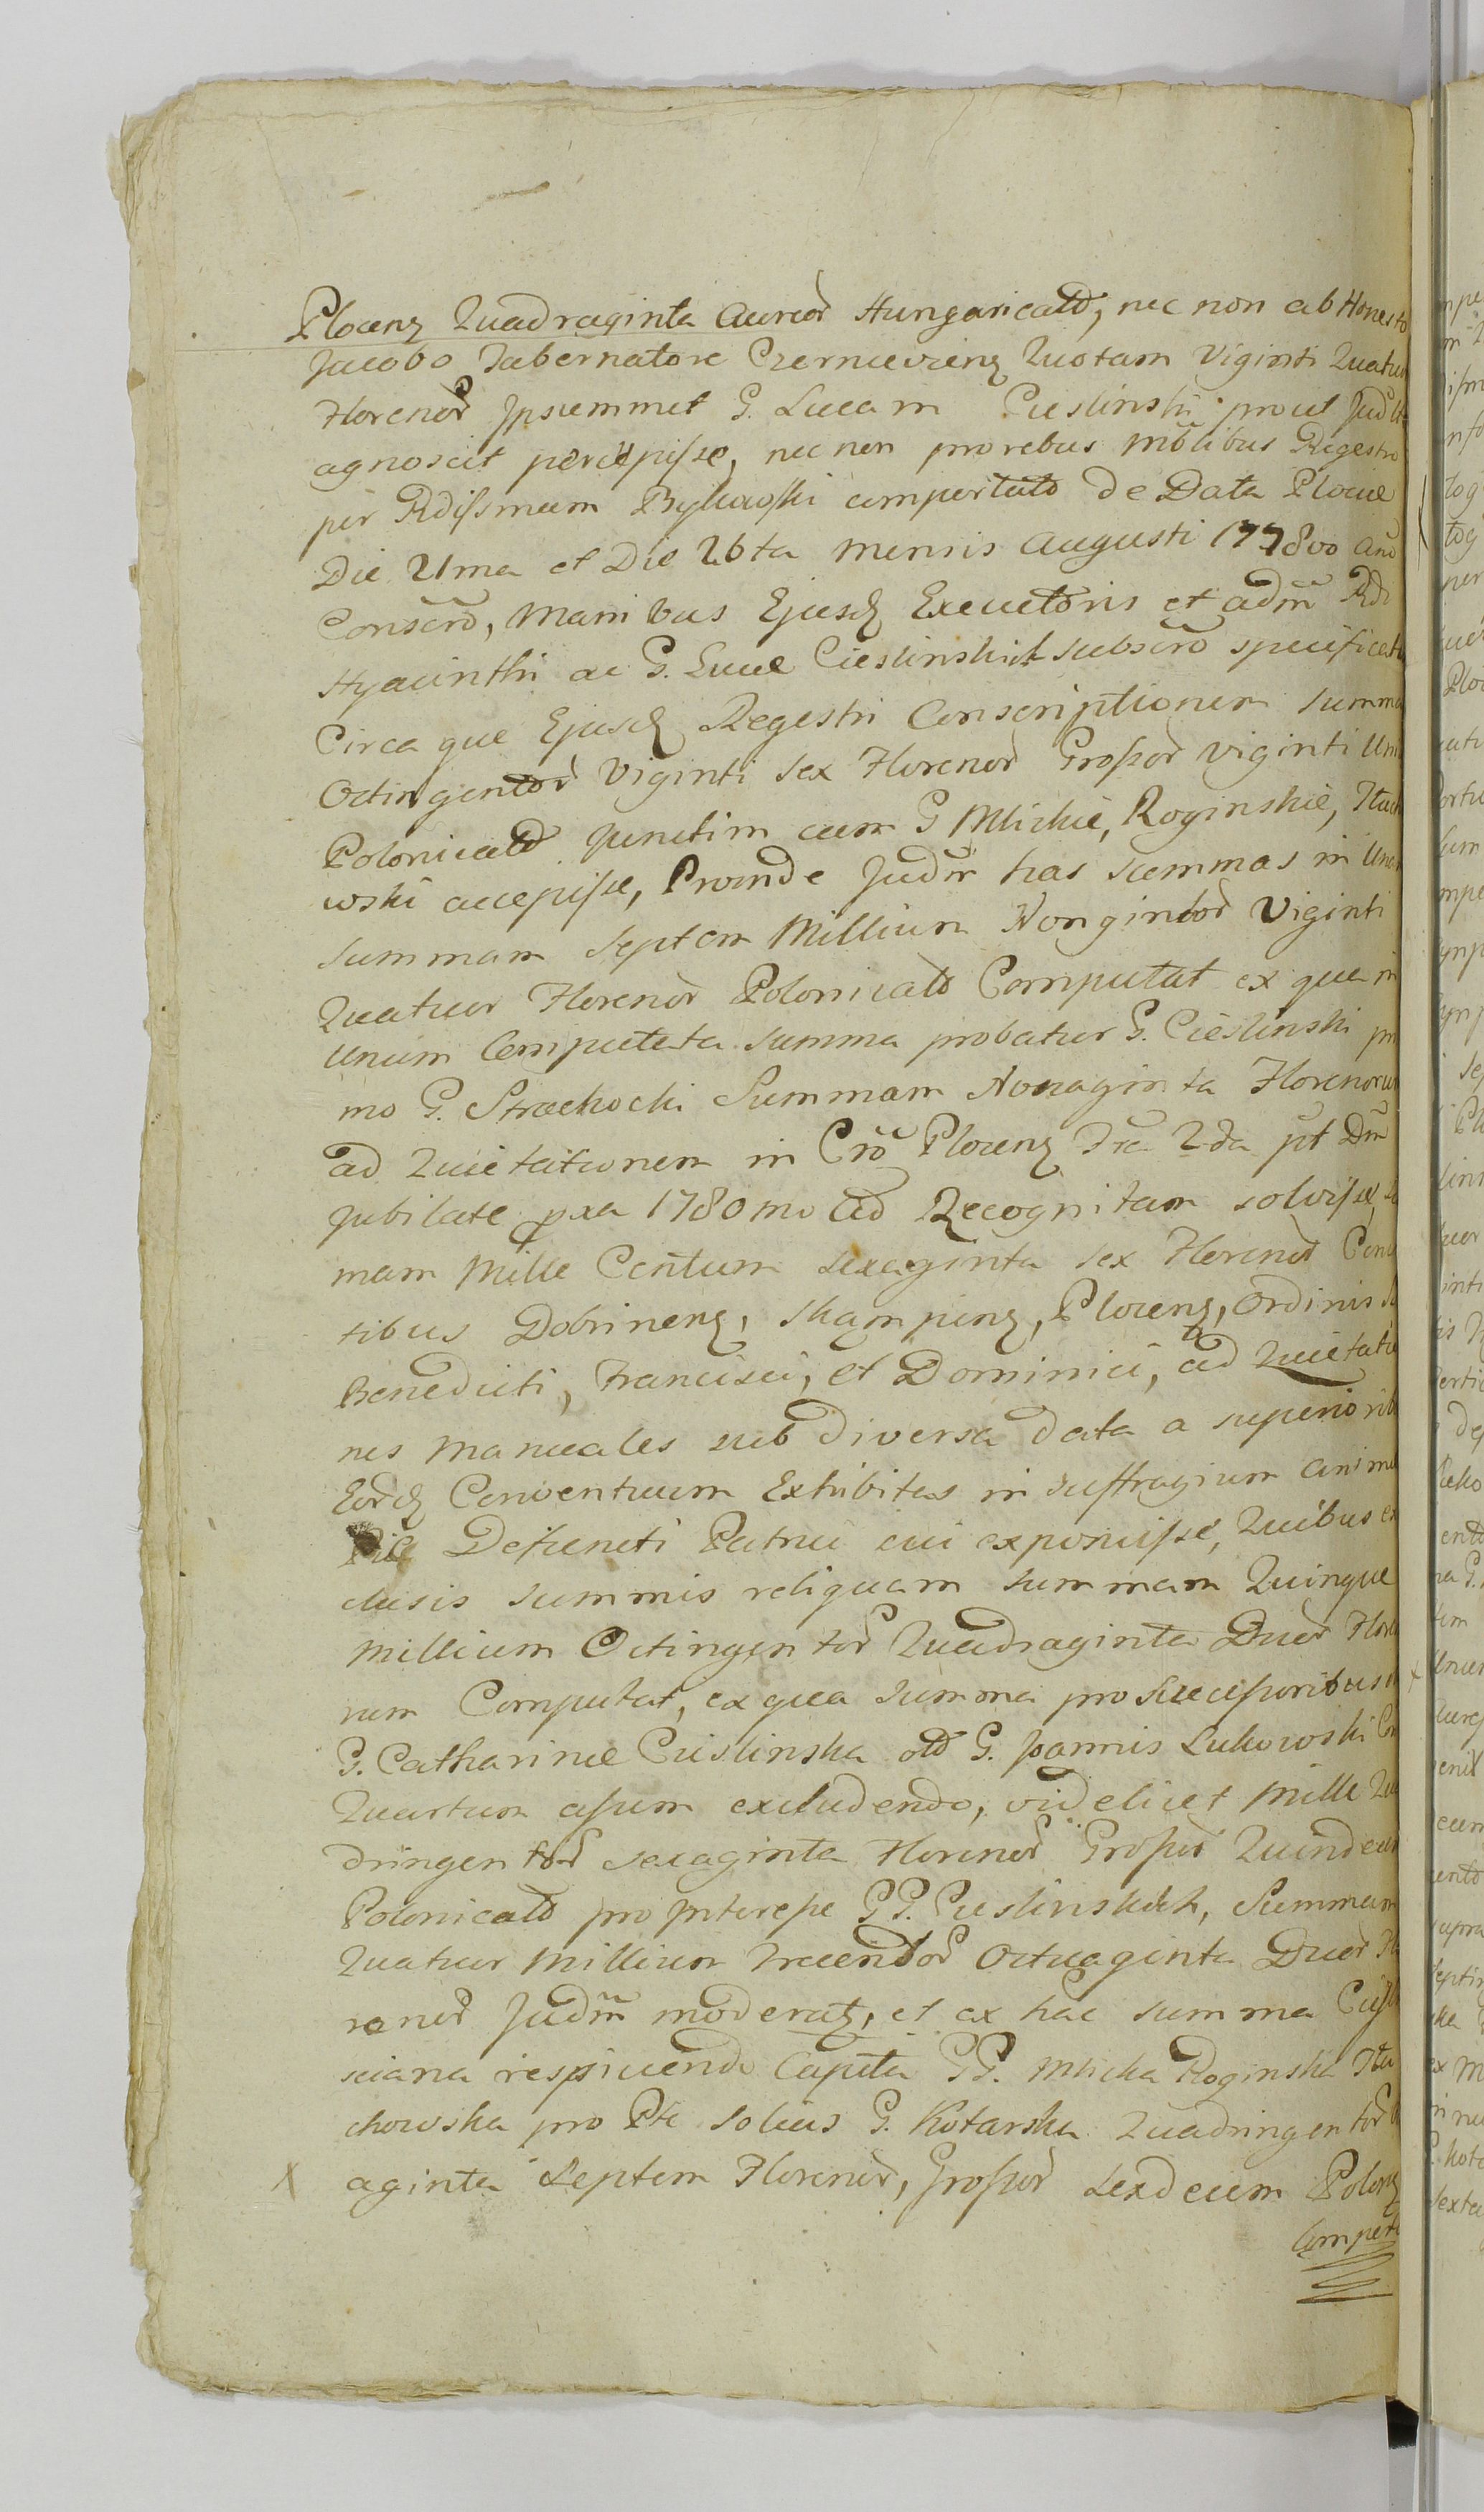 Plocenẓ Quadraginta Aureor̃ Hungaricalð, nec non ab Honesto
Jacobo Tabernatore Czerniewienẓ Quotam Viginti Quatuor
Florenor̃ Ipsemmet G. Lucam Cieslinski prout Judlr
agnoscit percepisse, nec non pro rebus mõlibus Regestro
per Rdissmum Bykowski comportatð de Data Plociae
Die 21ma et Die 26ta mensis Augusti 1778vo Ano
Conscrõ, Manibus Ejusd Executoris et Adm̃ Rdi
Hyacinthi ac G. Lucae Cieslinskich subscrõ specificatð
Circa que Ejusd Regestri Conscriptionem summã
Octingentor̃ Viginti sex Florenor̃ Grossor̃ Viginti Uni
Polonicalð junctim cum G Mlickie, Roginskie,
wski accepisse, Proinde Judm̃ has summas in Unam
summam septem Millium Nongentor̃ Viginti
Quatuor Florenor̃ Polonicalð Computat ex qua in
Unum Computata summa probatur G. Cieslinski pri
mo G. Strachocki Summam Nonaginta Florenorum
ad Quietationem in Crõ Plocenẓ Fra 2da pt Dm̃
Jubilate pxa 1780mo Ad Recognitam solvisse,
mam Mille Centum sexaginta sex Florenor̃ Conven
tibus Dobrinenẓ, Skampenẓ, Plocenẓ, Ordinis S
Benedicti, Francisci, et Dominici, ad Quietatio
nes Manuales sub Diversa Data a superiorib
Eord Conventuum Exhibitas in suffragium animae
Piae Defuncti Patrui sui exposuisse, Quibus ex
clusis summis reliquam summam Quinque
Millium Octingentor̃ Quadraginta Duor̃ Flore
num Computat, ex qua summa pro Successoribus
G. Catharinae Cieslinska olð G. Joannis Lukowski Con
Quartum assem excludendo, videlicet Mille Qua
dringentor̃ sexaginta Florenor̃ Grossor̃ Quindecim
Polonicalð pro Interesse GG. Cieslinskich, Summam
Quatuor Millium Trecentor̃ Octuaginta Duor̃ Flo
renor̃ Judm̃ moderatẓ, et ex hac summa
sciana respiciendo Capita GG. Mlicka Roginska Stra
chowska pro Pte solius G. Kotarska Quadringentor̃
X aginta Septem Florenor̃, Grossor̃ sexdecim Polonẓ
Comperta